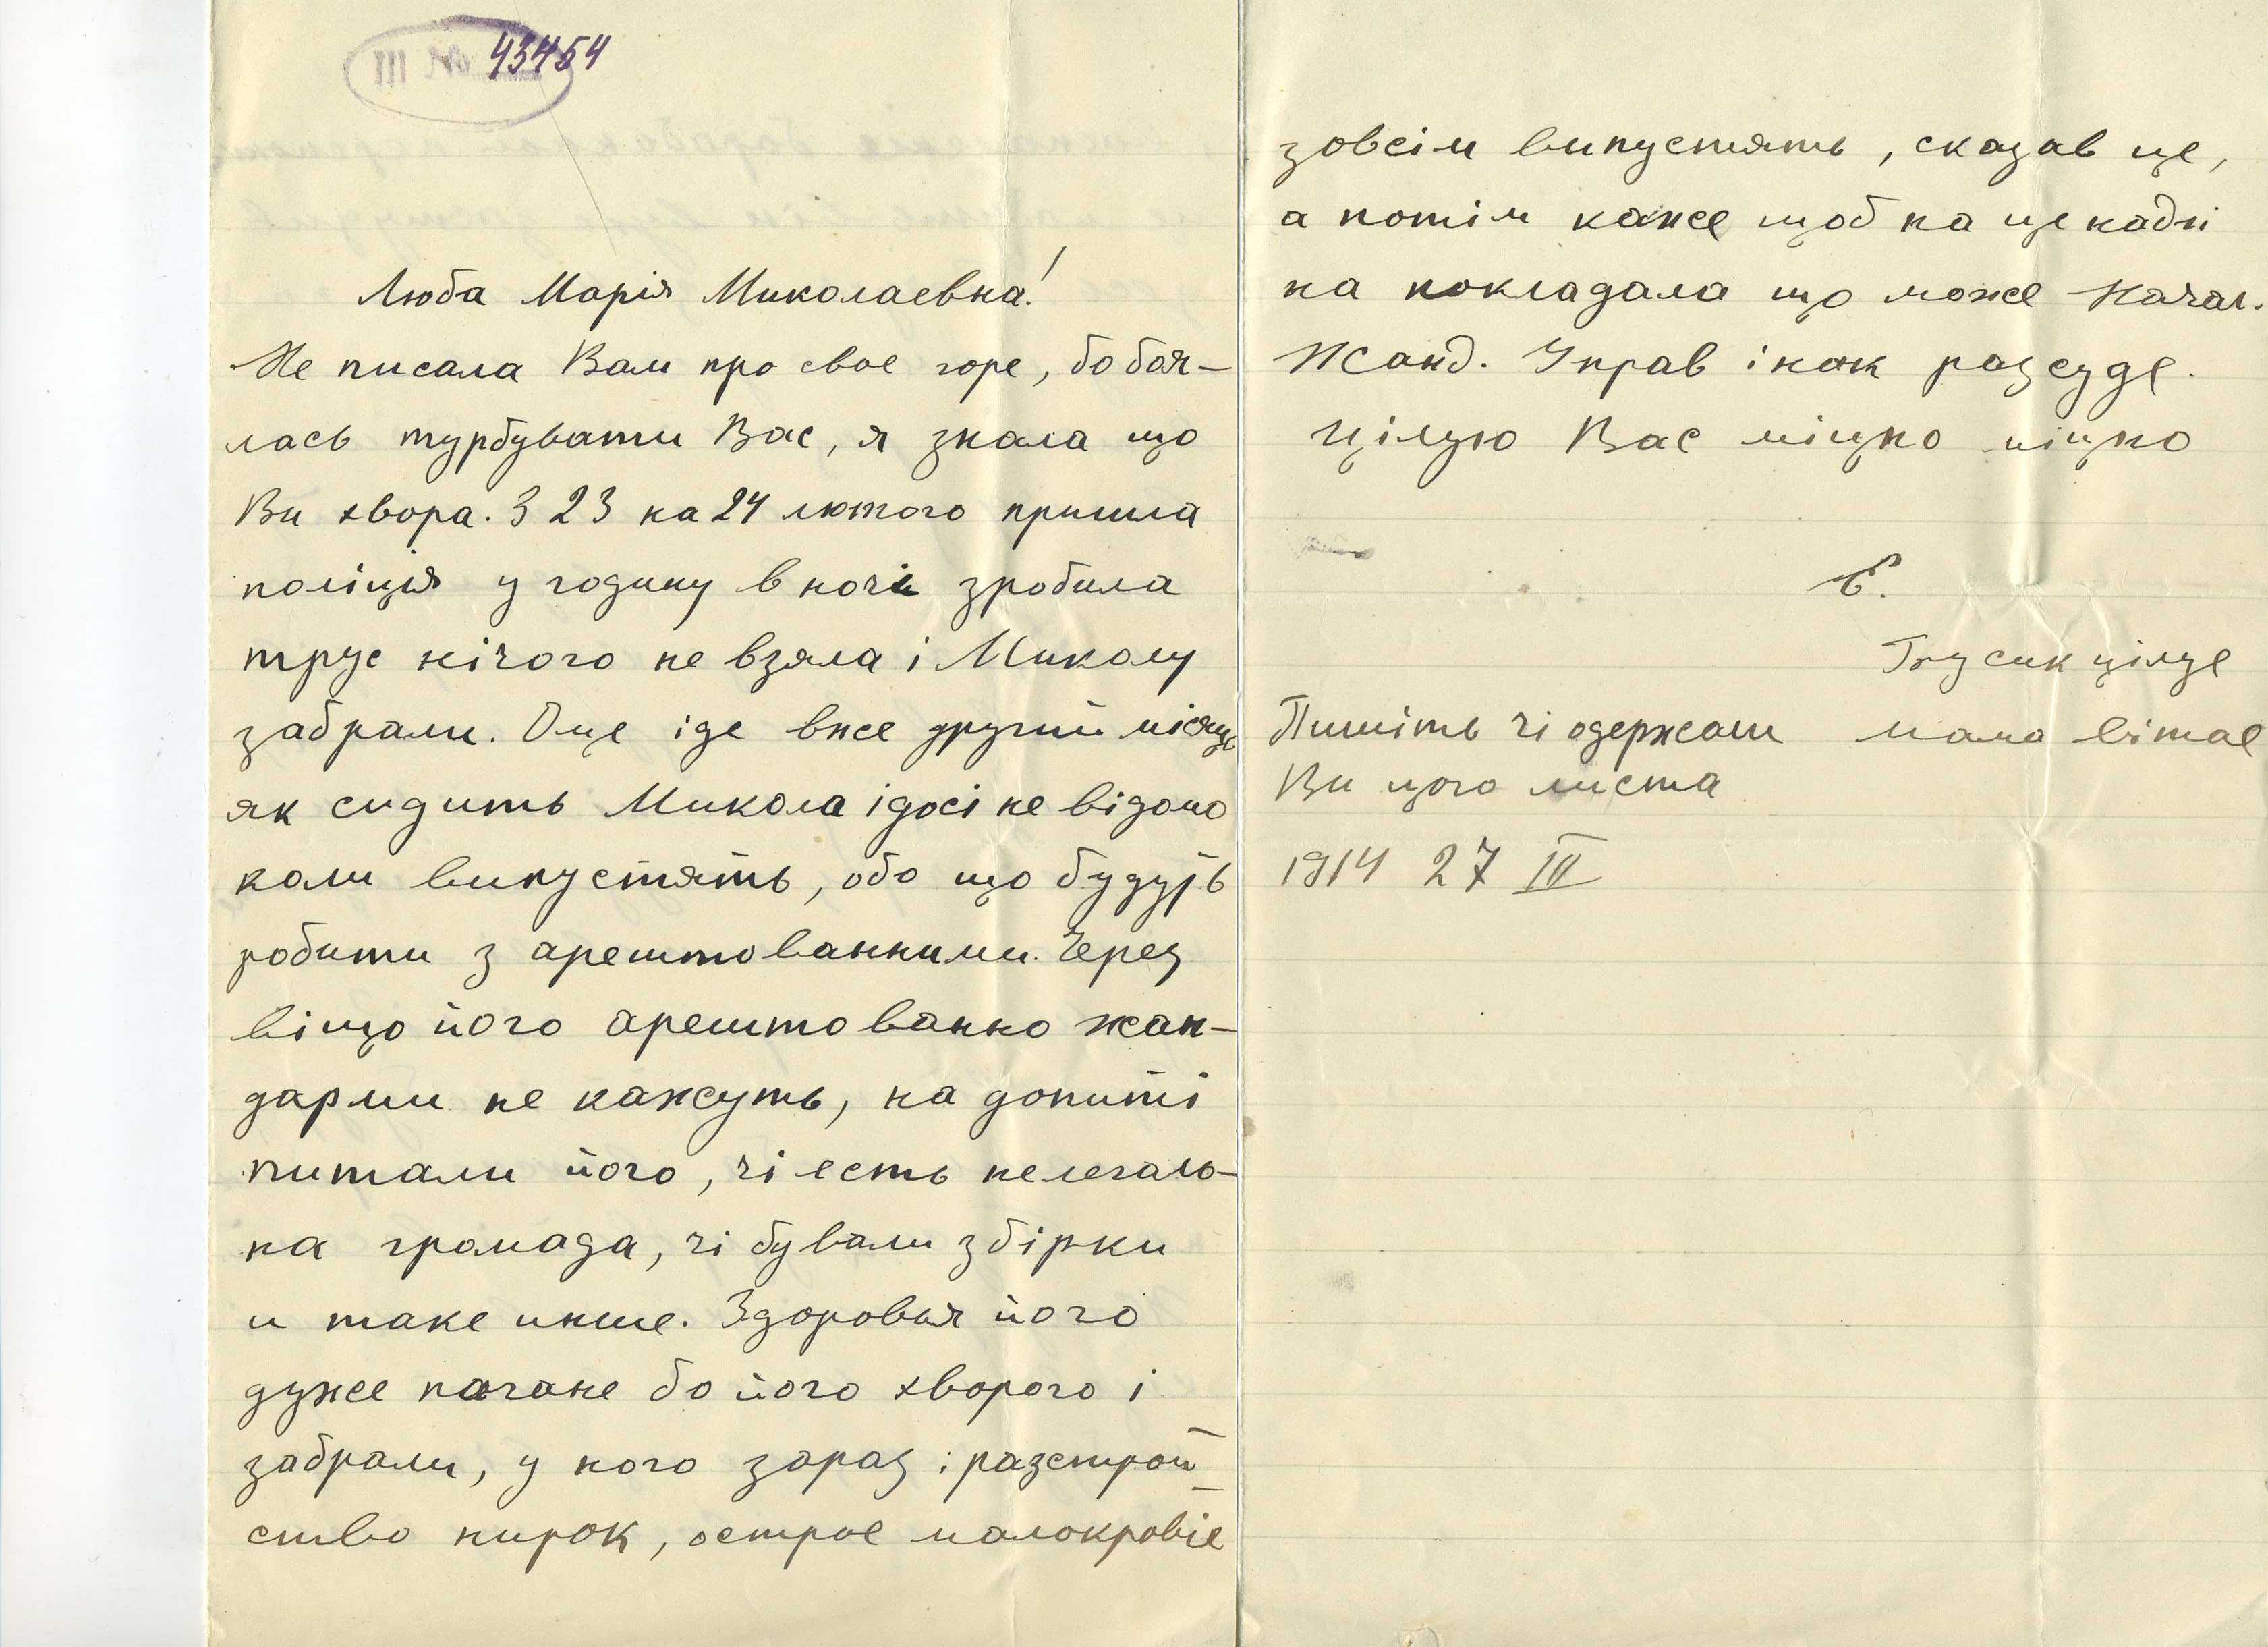 43454
III
Люба Марія Миколаевна!
Не писала Вам про свое горе, бо боя-
лась турбувати Вас, я знала що
Ви хвора. З 23 на 24 лютого пришла
поліція у годину в ночі зробила
трус нічого не взяла і Миколу
забрали. Оце іде вже другий місяць
як сидить Микола і досі не відомо
коли випустять, або що будуть
робити з арештованними. Через
віщо його арештованно жан-
дарми не кажуть, на допиті
питали його, чі есть нелегаль-
на громада, чі бували збірки
и таке инше. Здоровья його
дуже погане бо його хворого і
забрали, у ного зараз і разстрой-
ство нирок, острое малокровіе
зовсім випустять, сказав це,
а потім каже щоб на це надії
на покладала що може Начал.
Жанд. Управ інак разсуде.
Цілую Вас міцно міцно
Є.
цілує
Пишіть чі одержали мама вітае
Ви цього листа
1914 27 III